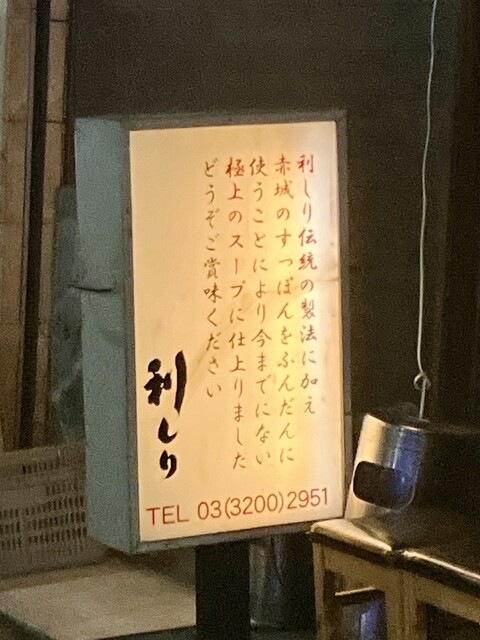 利しり伝統の製法に加え
赤城のすっぽんをふんだんに
使うことにより今までにない
極上のスープに仕上りました
どうぞご賞味ください
利しり
TEL 03(3200)2951